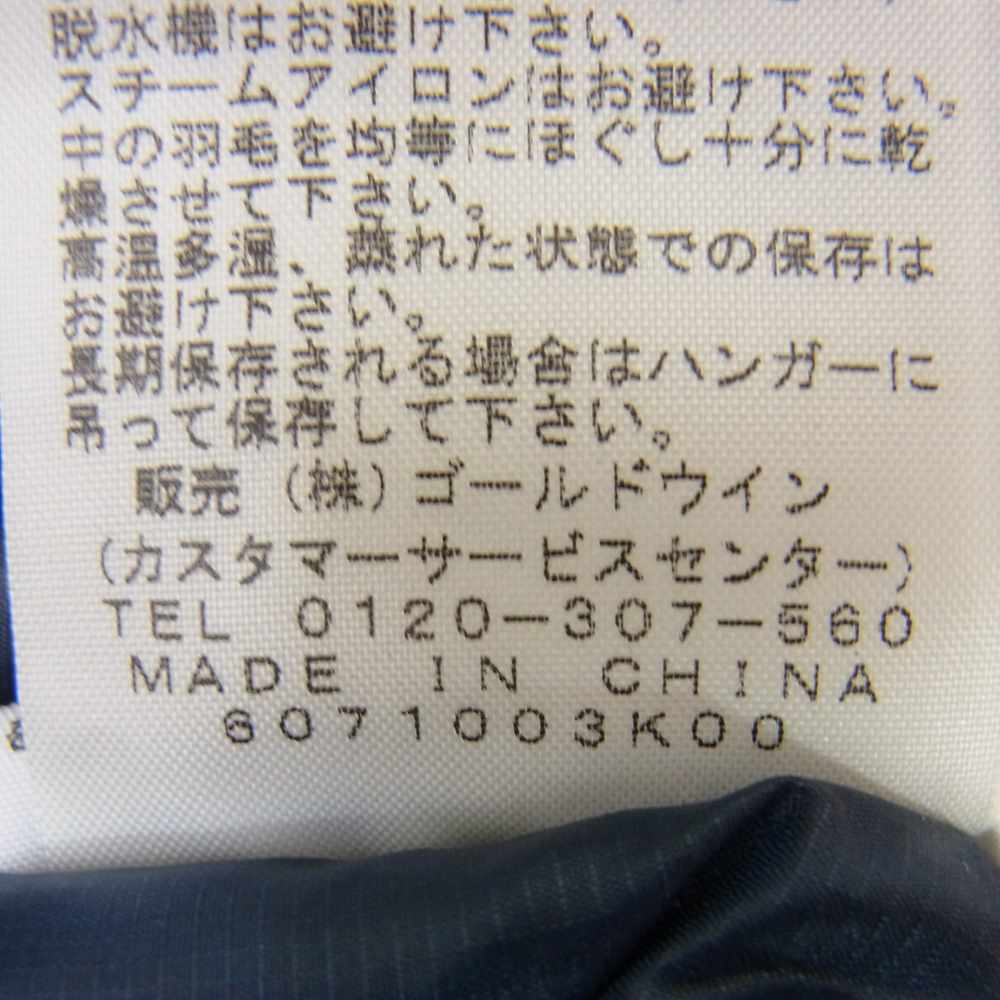 脱水機はお避け下さい。
スチームアイロンはお避け下さい。
中の羽毛を均等にほぐし十分に乾
燥させて下さい。
高温多湿、蒸れた状態での保存は
お避け下さい。
長期保存される場合はハンガーに
吊って保存して下さい。
販売 (株)ゴールドウイン
(カスタマーサービスセンター)
TEL 0120-307-560
MADE IN CHINA
6071003K00